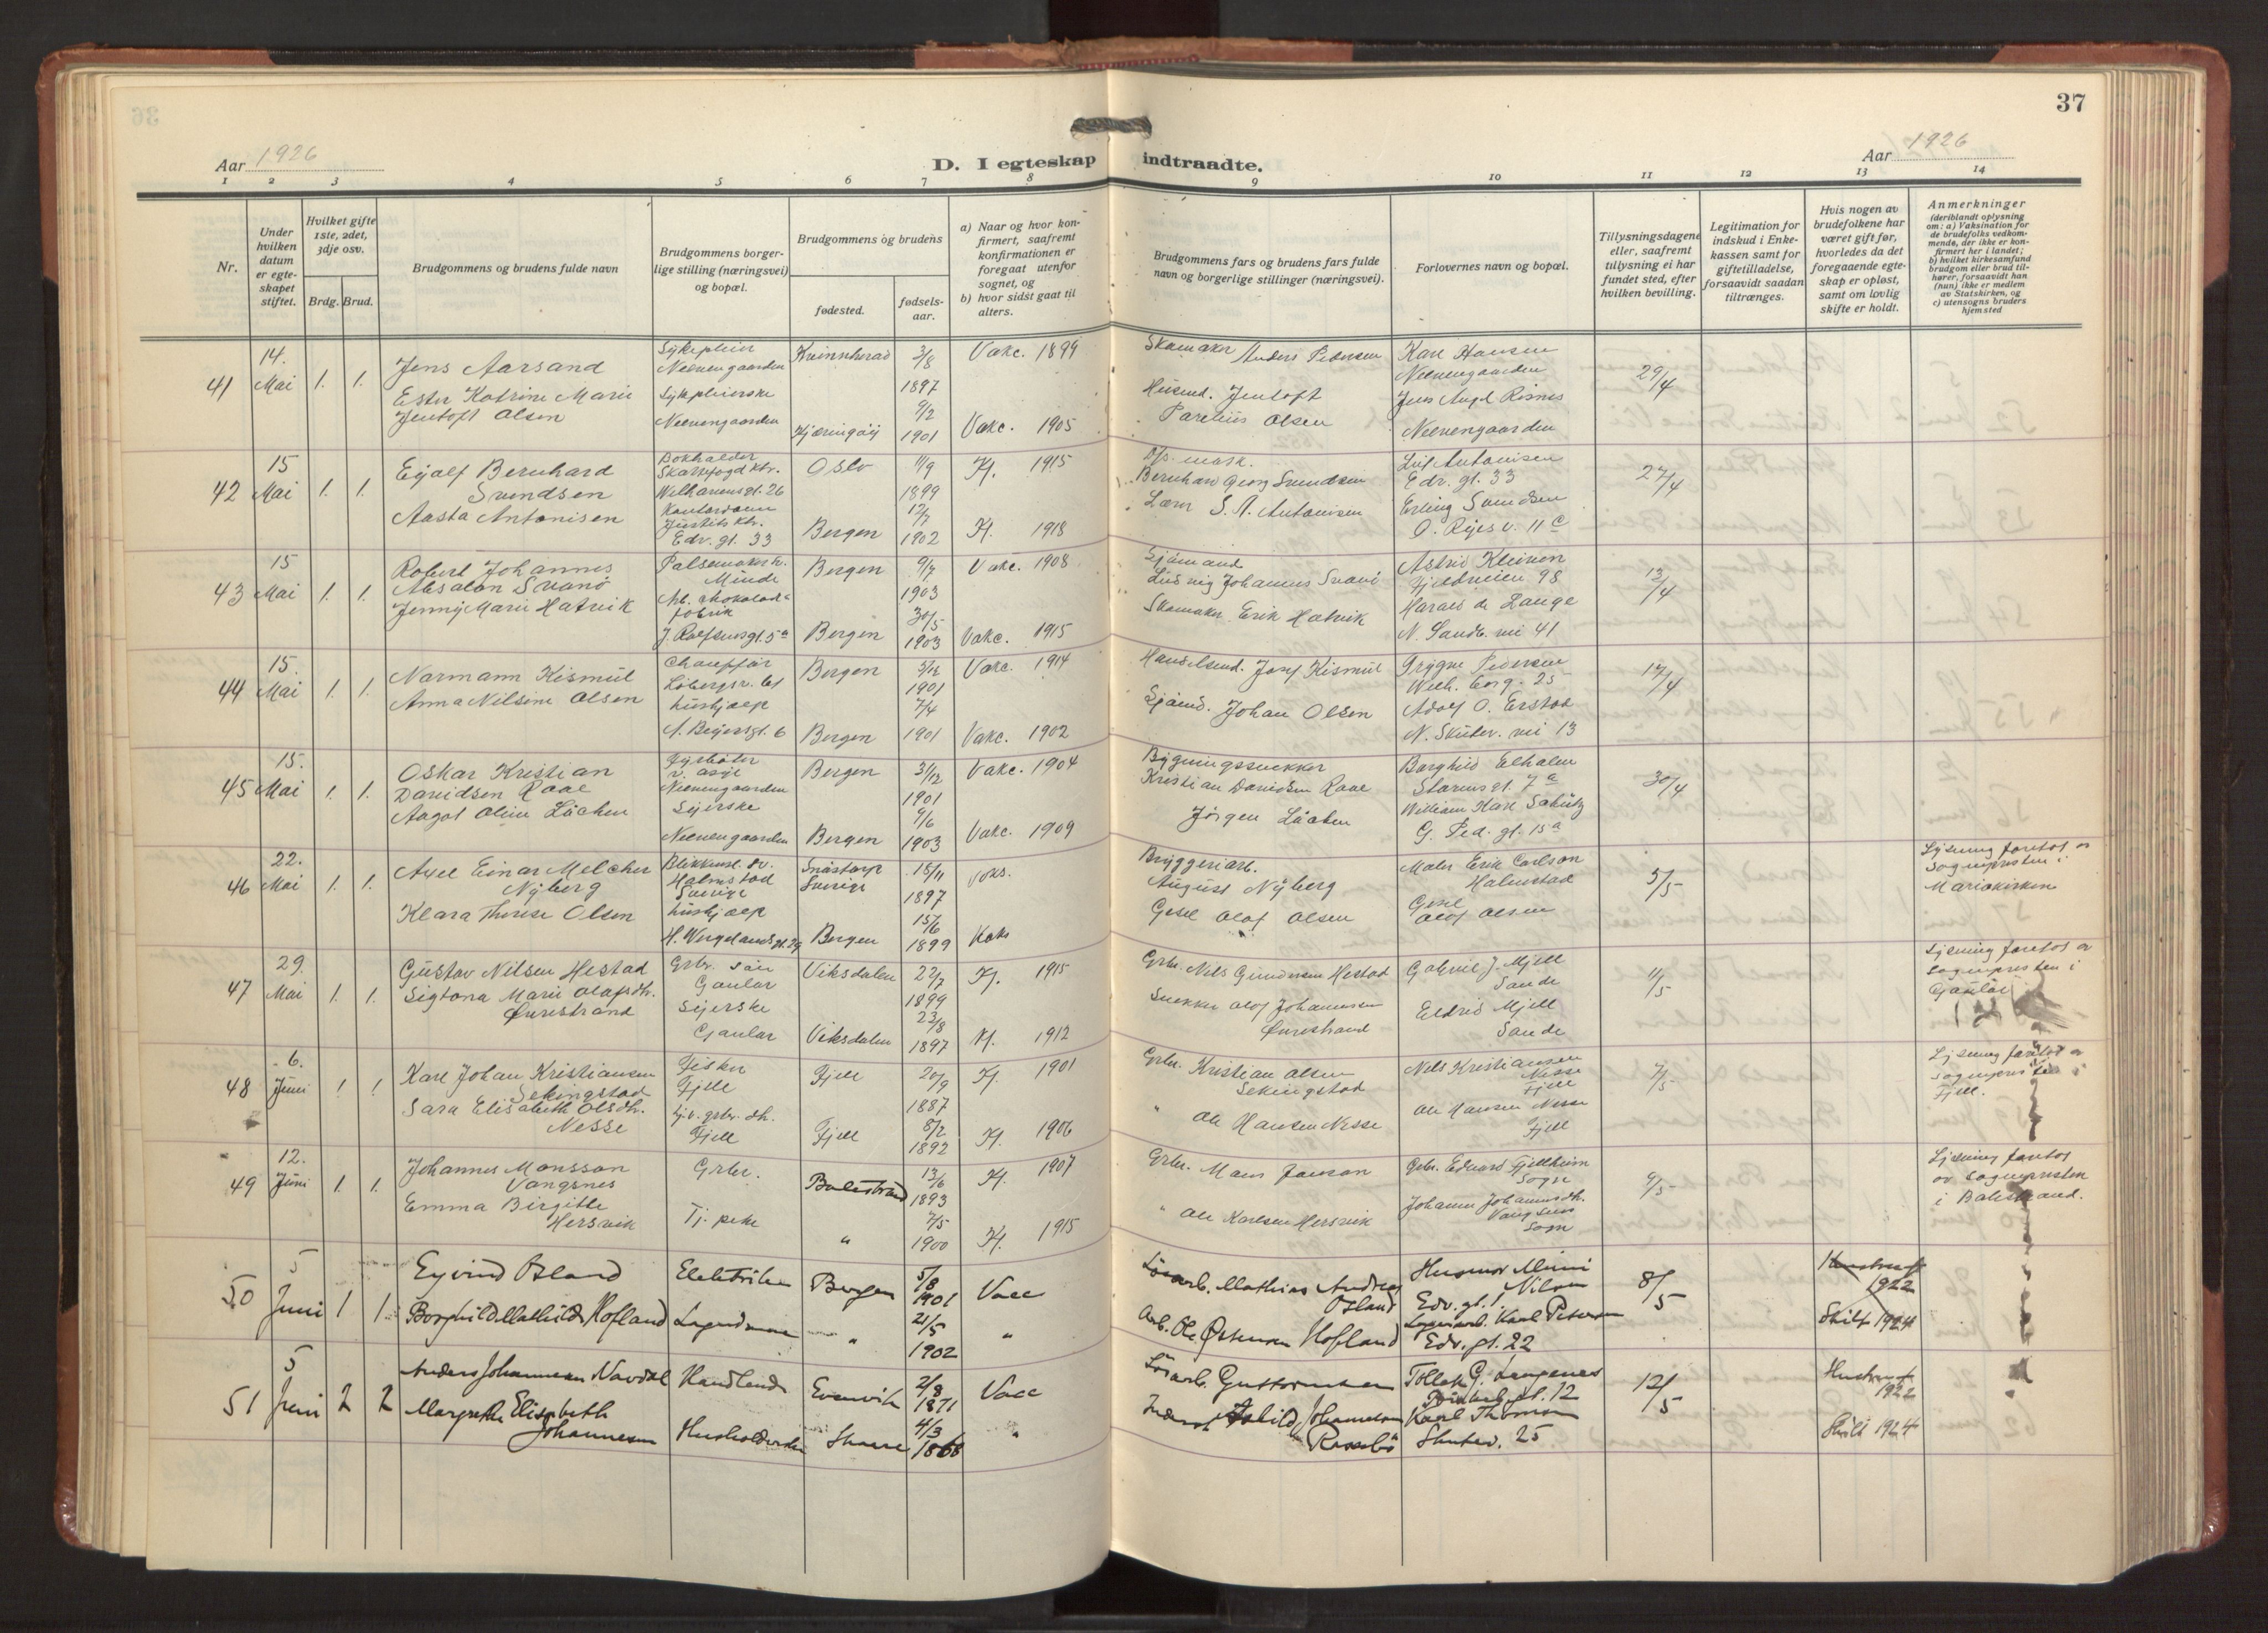 37
Aar 1926
D. I egteskap indtraadte.
Aar 1926
1 2 3 4 5 6 7 8 9 10 11 12 13 14
Nr.
Under hvilken datum er egteskapet stiftet.
Hvilket gifte 1ste, 2det, 3dje osv.
Brdg. Brud.
Brudgommens og brudens fulde navn
Brudgommens borgerlige stilling (næringsvei) og bopæl.
Brudgommens og brudens
fødested.
fødselsaar.
a) Naar og hvor konfirmert, saafremt konfirmationen er foregaat utenfor sognet, og
b) hvor sidst gaat til alters.
Brudgommens fars og brudens fars fulde navn og borgerlige stillinger (næringsvei).
Forlovernes navn og bopæl.
Tillysningsdagene eller, saafremt tillysning ei har fundet sted, efter hvilken bevilling.
Legitimation for indskud i Enkekassen samt for giftetilladelse, forsaavidt saadan tiltrænges.
Hvis nogen av brudefolkene har været gift før, hvorledes da det foregaaende egteskap er opløst, samt om lovlig skifte er holdt.
Anmerkninger
(deriblandt oplysning om: a) Vaksination for de brudefolks vedkommende, der ikke er konfirmert her i landet; b) hvilket kirkesamfund brudgom eller brud tilhører, forsaavidt han (hun) ikke er medlem av Statskirken, og c) utensogns bruders hjemsted
41 14. Mai 1. 1. Jens Aarsand
Sykepleier Neevengaarden Kvinnherad 3/8 1897 Vakc. 1899
Skomaker Anders Pedersen
Karl Hansen Neevengaarden 29/4
Ester Katrine Marie Jentoft Olsen
Sykepleierske Neevengaarden Kjæringøy 9/2 1901 Vakc. 1905
Husmd. Jentoft Parelius Olsen
Neevengaarden
42 15 Mai 1. 1. Eyolf Bernhard Svendsen
Bokholder Skattefogd ktr. Welhavensgt. 26 Oslo 11/9 1899 Kf. 1915
Bernhard Georg Svendsen
Leif Antonisen Edv. gt. 33 27/4
Aasta Antonisen
Kontordame Justits ktr. Edv. gt. 33 Bergen 12/7 1902 Kf. 1918
Lærer S. A. Antonisen
Erling Svendsen O. Ryes v. 11 c
43 15 Mai 1. 1. Robert Johannes Absalon Svanø
Pølsemaker Minde Bergen 9/7 1903 Vakc. 1908
Sjømand Ludvig Johannes Svanø
Astrid Kleiven Fjeldveien 98 12/4
Jenny Marie Hatvik
Arb. chokoladefabrik J. Rolfsensgt. 5a Bergen 30/5 1903 Vakc. 1915
Skomaker Erik Hatvik
Harald de Lange N. Sandv. vei 41
44 15. Mai 1. 1. Normann Kismul
Chauffør Løbergsv. 61 Bergen 5/12 1901 Vakc. 1914
Handelsmd. Josef Kismul
Trygve Pedersen 25 17/4
Anna Nilsine Olsen
hushjælp A. Beyersgt. 6 Bergen 7/4 1901 Vakc. 1902
Sjømd. Johan Olsen
Adolf O. Erstad N. Skutev. vei 13
45 15. Mai 1. 1. Oskar Kristian Davidsen Raae
Fyrbøter v. asyl Neevengaarden Bergen 31/12 1901 Vakc. 1904
Bygningssnekker Kristian Davidsen Raae
Borghild Starvsgt. 7 a 30/4
Aagot Oline Lücken
Syerske Neevengaarden Bergen 9/6 1903 Vakc. 1909
Jørgen Lücken
William Karl Schütz G. Ped. gt. 15 a
46 22. Mai 1. 1. Axel Einar Melcher Nyberg
Blikkensl. sv. Halmstad Sverige Snöstorp Sverige 18/11 1897 Vaks.
Bryggeriarb. August Nyberg
Maler Erik Carlson Halmstad 5/5
Lysning foretat av sognepresten i Mariakirken
Klara Therese Olsen
hushjælp H. Wergelandsgt. 29 Bergen 15/6 1899 Vaks
Gesel Olof Olsen
Gesel Olof Olsen
47 29. Mai 1. 1. Gustav Nilsen Hestad
Grbr. søn Gaular Viksdalen 22/7 1899 Kf. 1915
Grbr. Nils Gundersen Hestad
Gabriel J. Mjell Sande 11/5
Lysning foretat av sognepresten i Gaular
Sigtona Marie Olafsdtr.
Syerske Gaular Viksdalen 23/8 1897 Kf. 1912
Snekker Olof Johannesen
Eldrid Mjell Sande
48 6. Juni 1. 1. Karl Johan Kristiansen Sekingstad
Fisker Fjell Fjell 20/9 1887 Kf. 1901
Grbr. Kristian Olsen Sekingstad
Nils Kristiansen Nesse Fjell 7/5
Lysning foretat av sognepresten i Fjell.
Sara Elisabeth Olsdtr. Nesse
Fjell Fjell 8/2 1892 Kf. 1906
" Ole Hansen Nesse
Ole Hansen Nesse Fjell
49 12. Juni 1. 1. Johannes Monsson Vangsnes
Grbr. Balestrand 13/6 1893 Kf. 1907
Grbr. Mons Jonson
Grbr. Edvard Fjellheim Sogn 9/5
Lysning foretat av sognepresten i Balestrand.
Emma Birgitte Hersvik
Tj. pike " 7/5 1900 Kf. 1915
" Ole Karlsen Hersvik
Johanne Johannesdtr. Vangsnes Sogn
50 5 Juni 1 1. Eyvind Osland
Elektriker Bergen 5/8 1901 Vacc
Løsarb. Mathias Andreas Osland
Husmor Mimi Nilsen Edv. gt. 1. 8/5
Hustru † 1922
Skift 1924
Borghild Mathilde Hofland
" 21/5 1902 "
Arb. Ole Østensen Hofland
Lagerarb. Karl Petersen Edv. gt. 22
51 5 Juni 2 2 Anders Johannesen Navdal
Handlende Evenvik 2/8 1871 Vacc
Løsarb. Guttormsen
Tollak G. Langenes gt. 12 12/5
Hustru † 1922
Skift 1924
Margrethe Elisabeth Johannesen
Husholderske 4/3 1868 "
Johannesen
Karl Thomsen Skutev. 25